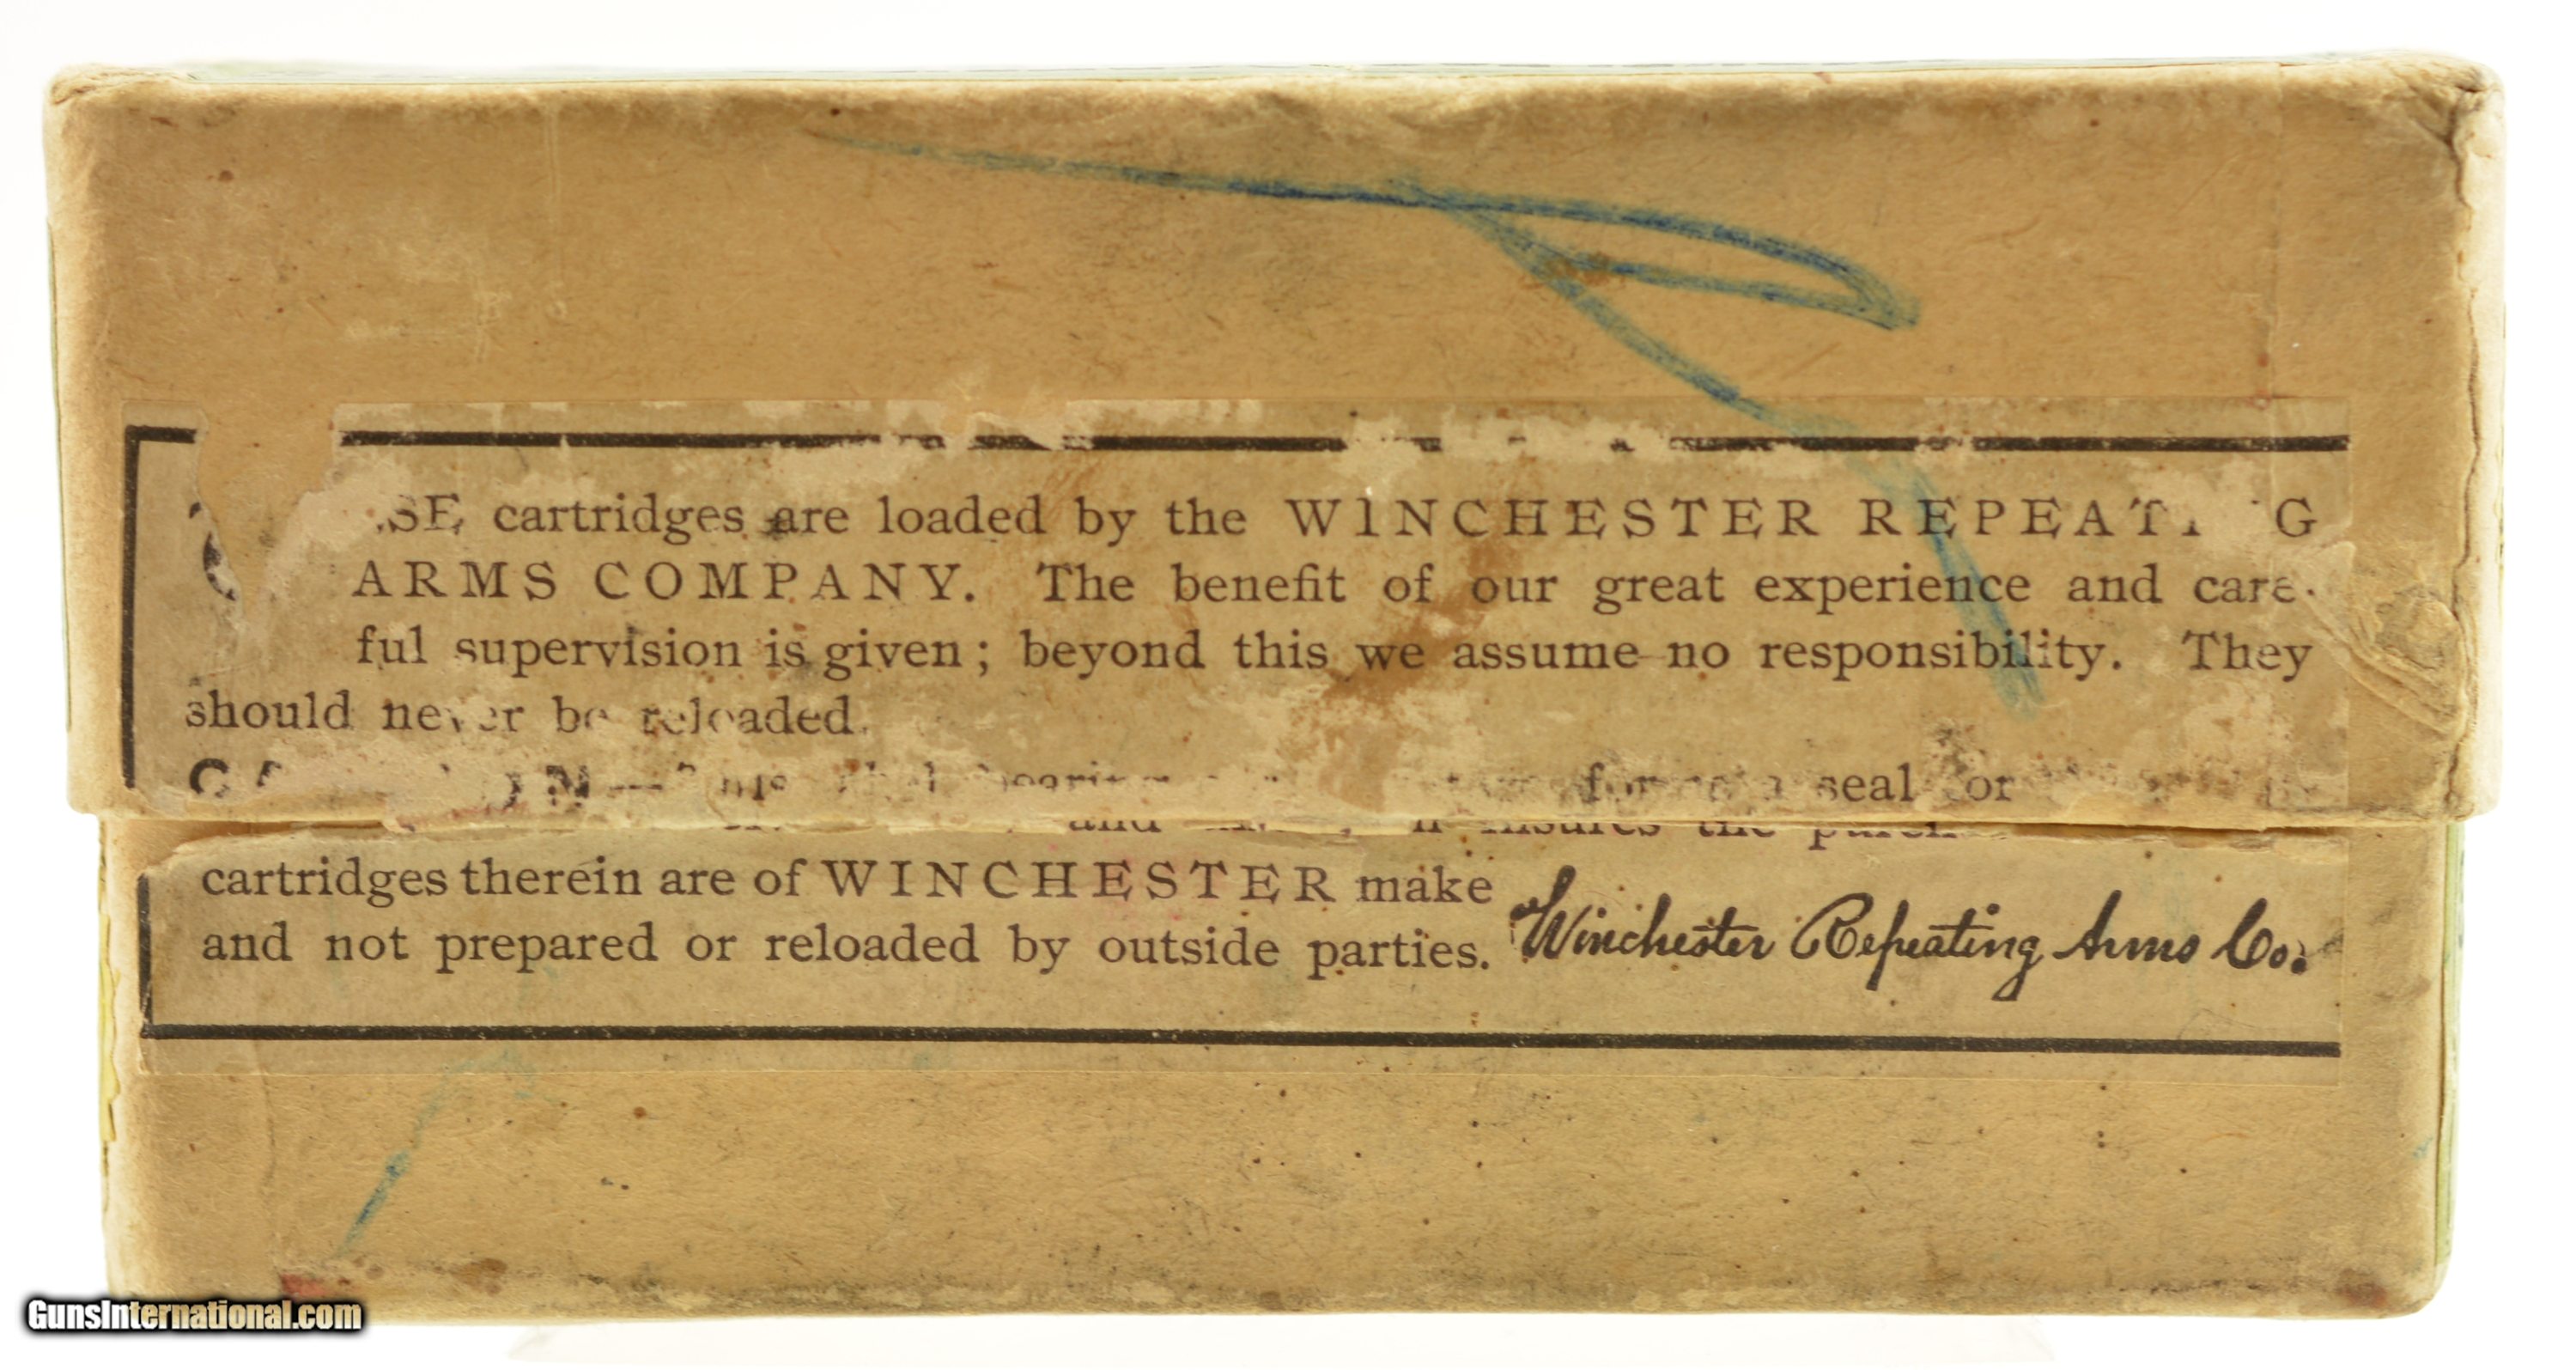 cartridges are loaded by the WINCHESTER REPEATING
ARMS COMPANY. The benefit of our great experience and care-
ful supervision is given; beyond this we assume no responsibility. They
should never be reloaded.
seal or
and it insures the
cartridges therein are of WINCHESTER make
and not prepared or reloaded by outside parties. Winchester Repeating Arms Co.
GunsInternational.com